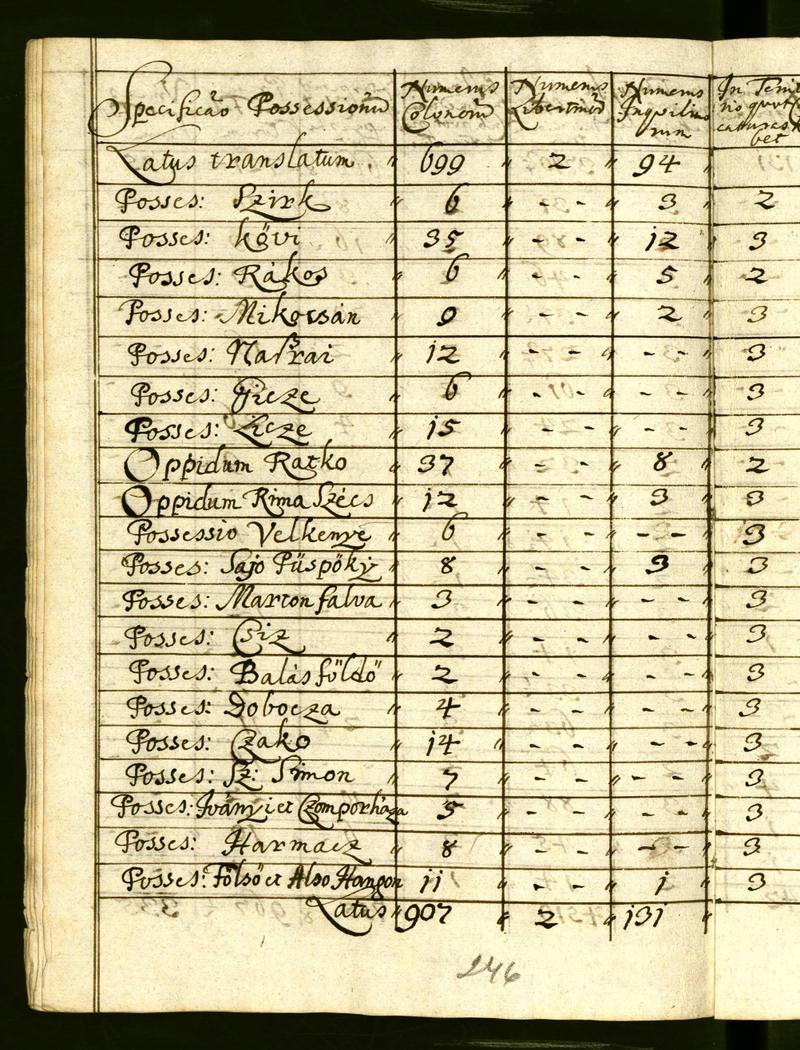 Specificão Possessionũ Numerus Colonorũ Numerus Libertinorũ Numerus Inquilinorum In Terri
Latus translatum " 699 " 2 " 94 "
Posses: Szirk " 6 " - - " 3 " 2
Posses: kövi " 35 " - - " 12 " 3
Posses: Rákos " 6 " - - " 5 " 2
Posses: Mikocsán " 9 " - - " 2 " 3
Posses: Nasrai " 12 " - - " - - " 3
Posses: Gicze " 6 " - - " - - " 3
Posses: Licze " 15 " - - " - - " 3
Oppidum Ratko " 37 " - - " 8 " 2
Oppidum Rima Szécs " 12 " - - " 3 " 3
Possessio Velkenye " 6 " - - " - - " 3
Posses: Sajo Püspöky " 8 " - - " 3 " 3
Posses: Marton falva " 3 " - - " - - " 3
Posses: Csiz " 2 " - - " - - " 3
Posses: Balás földő " 2 " - - " - - " 3
Posses: Dobocza " 4 " - - " - - " 3
Posses: Czako " 14 " - - " - - " 3
Posses: Sz: Simon " 7 " - - " - - " 3
Posses: Iványi et Czomporháza 5 " - - " - - " 3
Posses: Harmacz " 8 " - - " - - " 3
Posses: Fölső et Also Hangon 11 " - - " 1 " 3
Latus " 907 " 2 " 131 "
246